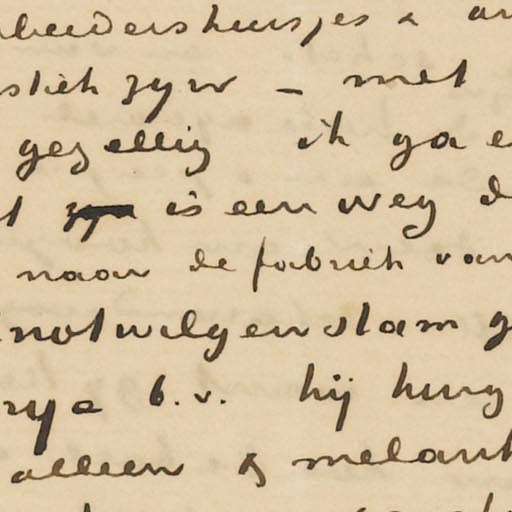 beidershuisjes &
stiek zyn – met
gezellig ik ga e
t is een weg d
naar de fabriek van
notwilgenstam g
b.v. hij hing
alleen & melank